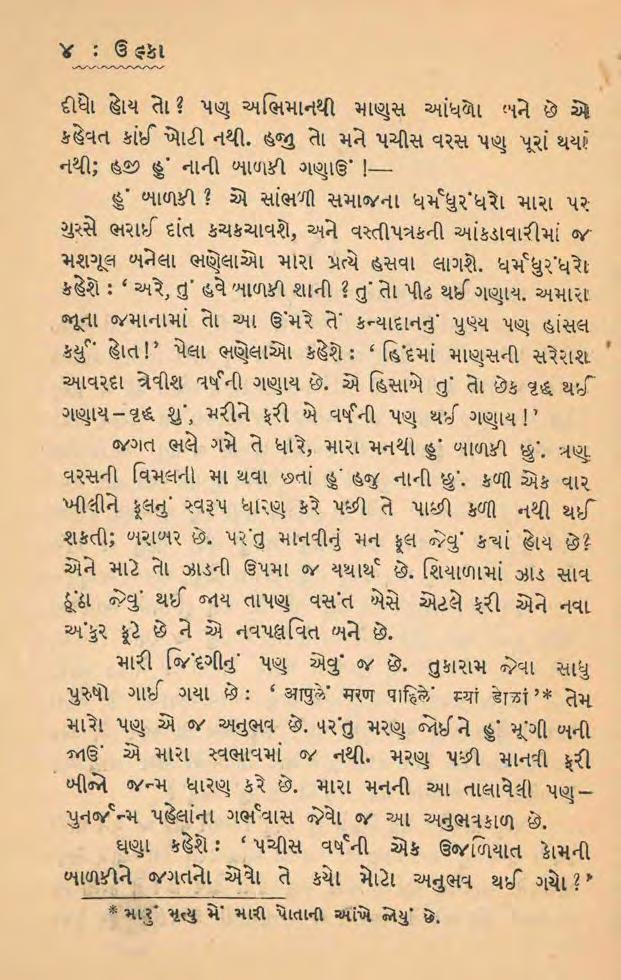 ૪ : ઉલ્કા
દીધો હોય તો ? પણ અભિમાનથી માણસ આંધળો બને છે એ
કહેવત કાંઈ ખોટી નથી. હજી તો મને પચીસ વરસ પણ પૂરાં થયાં
નથી; હજી હું નાની બાળકી ગણાઉં !—
હું બાળકી ? એ સાંભળી સમાજના ધર્મધુરંધરો મારા પર
ગુસ્સે ભરાઈ દાંત કચકચાવશે, અને વસ્તીપત્રકની આંકડાવારીમાં જ
મશગૂલ બનેલા ભણેલાઓ મારા પ્રત્યે હસવા લાગશે. ધર્મધુરંધરો
કહેશે : ‘ અરે, તું હવે બાળકી શાની ? તું તો પીઢ થઈ ગણાય. અમારા
જૂના જમાનામાં તો આ ઉંમરે તેં કન્યાદાનનું પુણ્ય પણ હાંસલ
કર્યું હોત!’ પેલા ભણેલાઓ કહેશે : ‘ હિંદમાં માણસની સરેરાશ
આવરદા ત્રેવીશ વર્ષની ગણાય છે. એ હિસાબે તું તો છેક વૃદ્ધ થઈ
ગણાય–વૃદ્ધ શું, મરીને ફરી બે વર્ષની પણ થઈ ગણાય !’
જગત ભલે ગમે તે ધારે, મારા મનથી હું બાળકી છું. ત્રણ
વરસની વિમલની મા થવા છતાં હું હજુ નાની છું. કળી એક વાર
ખીલીને ફૂલનું સ્વરૂપ ધારણ કરે પછી તે પાછી કળી નથી થઈ
શકતી; બરાબર છે. પરંતુ માનવીનું મન ફૂલ જેવું કયાં હોય છે?
એને માટે તો ઝાડની ઉપમા જ યથાર્થ છે. શિયાળામાં ઝાડ સાવ
ઠૂંઠા જેવું થઈ જાય તોપણ વસંત બેસે એટલે ફરી એને નવા
અંકુર ફૂટે છે ને એ નવપલ્લવિત બને છે.
મારી જિંદગીનું પણ એવું જ છે. તુકારામ જેવા સાધુ
પુરુષો ગાઈ ગયા છે : ‘ आपुलें मरण पाहिलें म्यां डोळां ’* તેમ
મારો પણ એ જ અનુભવ છે. પરંતુ મરણ જોઈને હું મૂંગી બની
જાઉં એ મારા સ્વભાવમાં જ નથી. મરણ પછી માનવી ફરી
બીજો જન્મ ધારણ કરે છે. મારા મનની આ તાલાવેલી પણ–
પુનર્જન્મ પહેલાંના ગર્ભવાસ જેવો જ આ અનુભવકાળ છે.
ઘણા કહેશે : ‘ પચીસ વર્ષની એક ઉજળિયાત કોમની
બાળકીને જગતનો એવો તે કયો મોટો અનુભવ થઈ ગયો ?’
* મારું મૃત્યુ મેં મારી પોતાની આંખે જોયું છે.